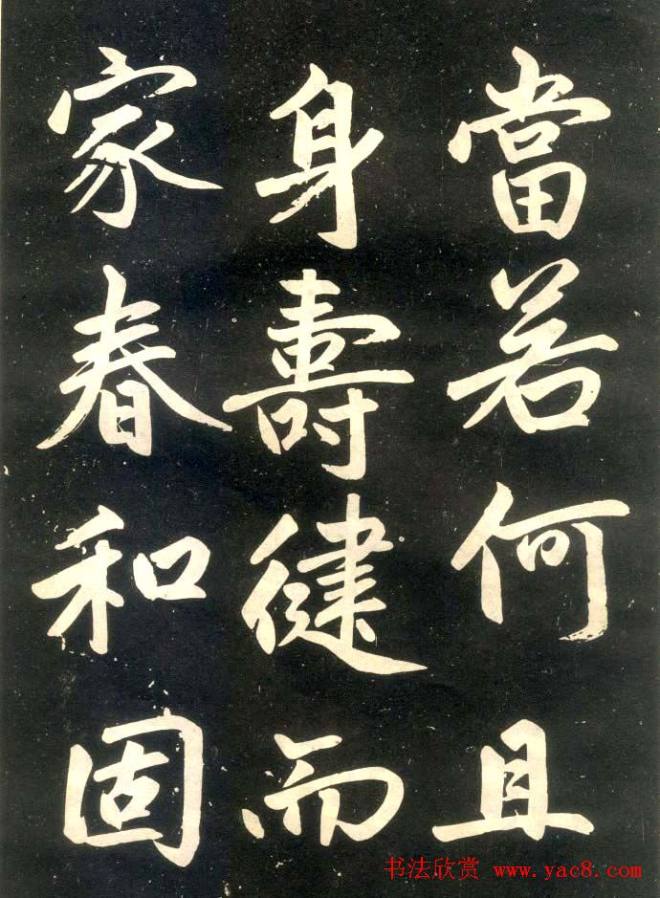 當若何且
身壽健而
家春和固
书法欣赏 www.yac8.com